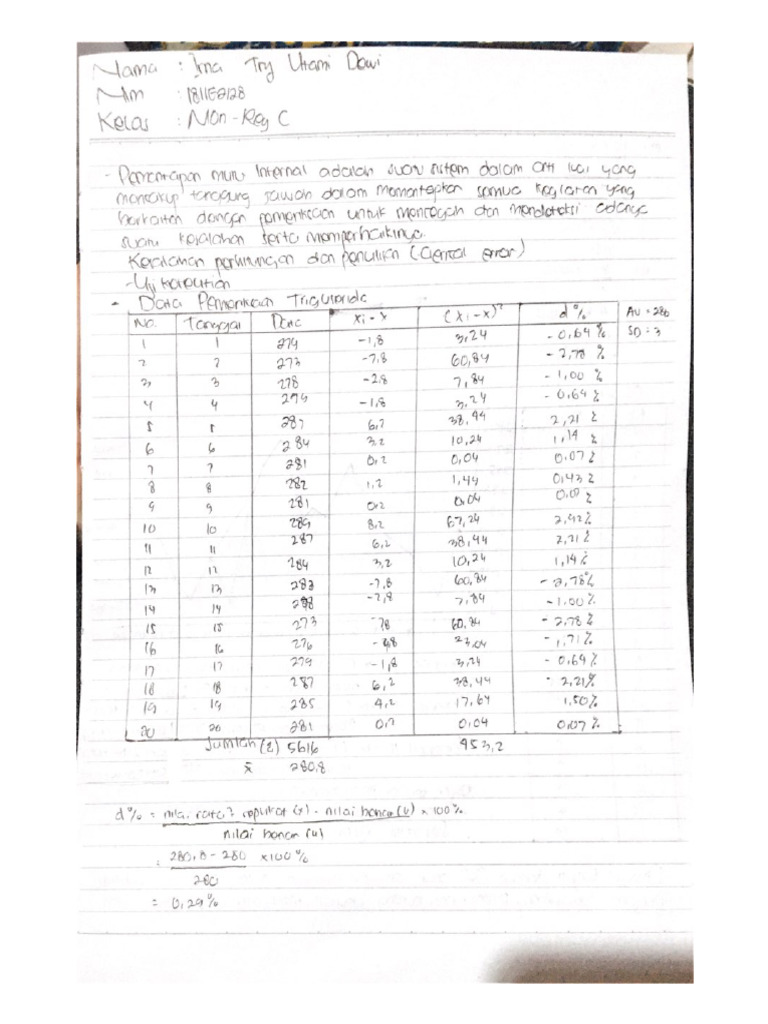 Nama : Ima Try Utami Dewi
Nim : 1811E2128
Kelas : Non-Reg C
- Pemantapan mutu Internal adalah suatu sistem dalam arti luas yang
mencakup tanggung jawab dalam memantapkan semua kegiatan yang
berkaitan dengan pemeriksaan untuk mencegah dan mendeteksi adanya
suatu kesalahan serta memperbaikinya.
Kesalahan perhitungan dan penulisan (Clerical error)
- Uji ketelitian
- Data Pemeriksaan Trigliserida
No. Tanggal Data xi - x (xi - x)² d % AU = 280
1 1 279 -1,8 3,24 - 0,64 % SD = 3
2 2 273 -7,8 60,84 - 2,78 %
3 3 278 -2,8 7,84 - 1,00 %
4 4 279 -1,8 3,24 - 0,64 %
5 5 287 6,2 38,44 2,21 %
6 6 284 3,2 10,24 1,14 %
7 7 281 0,2 0,04 0,07 %
8 8 282 1,2 1,44 0,43 %
9 9 281 0,2 0,04 0,07 %
10 10 289 8,2 67,24 2,92 %
11 11 287 6,2 38,44 2,21 %
12 12 284 3,2 10,24 1,14 %
13 13 283 -7,8 60,84 - 2,78 %
14 14 278 -2,8 7,84 -1.00 %
15 15 273 78 60,84 - 2,78 %
16 16 276 - 4,8 23,04 - 1,71 %
17 17 279 -1,8 3,24 - 0,64 %
18 18 287 6,2 38,44 - 2,21 %
19 19 285 4,2 17,64 1,50 %
20 20 281 0,2 0,04 0,07 %
Jumlah (Σ) 5616 453,2
x̄ 280,8
d % = nilai rata² (x) - nilai benar (u) x 100 %
nilai benar (u)
= 280,8 - 280 x100 %
280
= 0,29 %